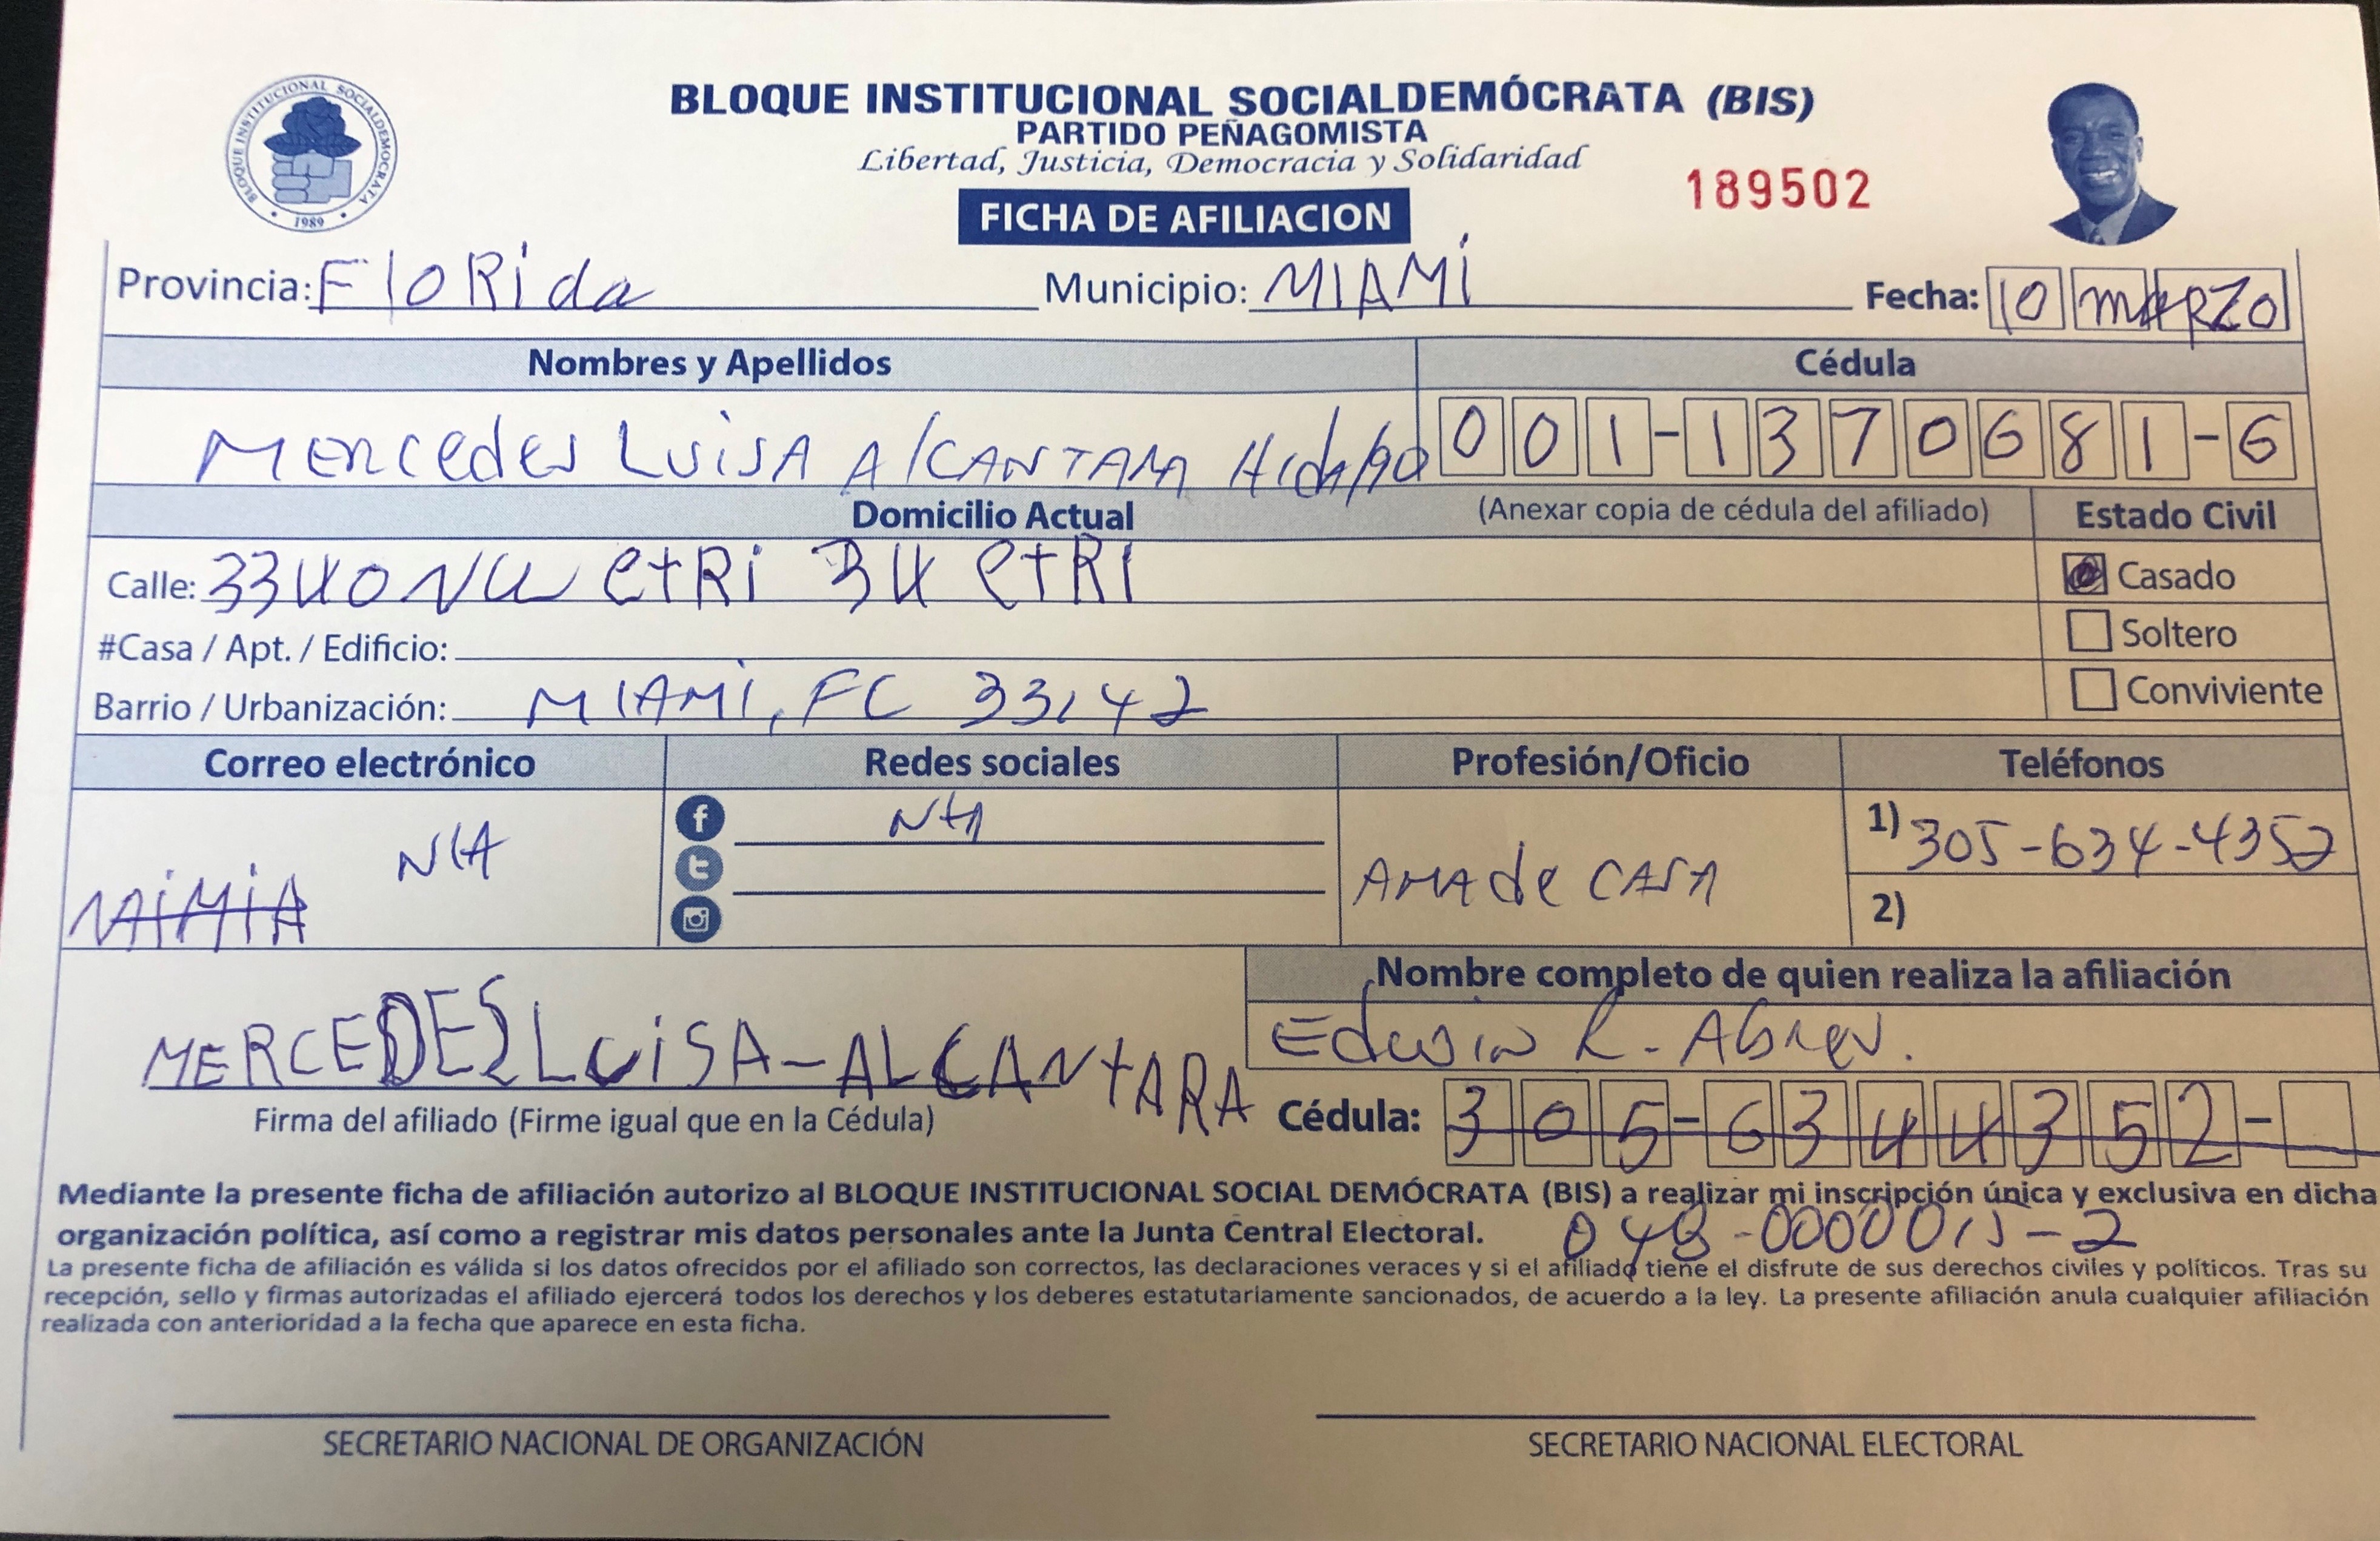 BLOQUE INSTITUCIONAL SOCIALDEMOCRATA
1989
BLOQUE INSTITUCIONAL SOCIALDEMÓCRATA (BIS)
PARTIDO PEÑAGOMISTA
Libertad, Justicia, Democracia y Solidaridad
189502
FICHA DE AFILIACION
Provincia: FlORida Municipio: MIAMi Fecha: 10 mARZO
Nombres y Apellidos Cédula
Mercedes Luisa AlCANTARA Hidalgo 001-1370681-6
Domicilio Actual (Anexar copia de cédula del afiliado) Estado Civil
Calle: 3340 NW etRi 34 etRI Casado
#Casa / Apt. / Edificio: Soltero
Barrio / Urbanización: MIAMi, FL 33142 Conviviente
Correo electrónico Redes sociales Profesión/Oficio Teléfonos
N/A N/A AMA de CASA 1) 305-634-4352
2)
Nombre completo de quien realiza la afiliación
MERCEDES LuiSA-ALCANtARA Edwin R. Abreu.
Firma del afiliado (Firme igual que en la Cédula) Cédula: 305-6344352-
Mediante la presente ficha de afiliación autorizo al BLOQUE INSTITUCIONAL SOCIAL DEMÓCRATA (BIS) a realizar mi inscripción única y exclusiva en dicha
organización política, así como a registrar mis datos personales ante la Junta Central Electoral.
La presente ficha de afiliación es válida si los datos ofrecidos por el afiliado son correctos, las declaraciones veraces y si el afiliado tiene el disfrute de sus derechos civiles y políticos. Tras su
recepción, sello y firmas autorizadas el afiliado ejercerá todos los derechos y los deberes estatutariamente sancionados, de acuerdo a la ley. La presente afiliación anula cualquier afiliación
realizada con anterioridad a la fecha que aparece en esta ficha.
SECRETARIO NACIONAL DE ORGANIZACIÓN SECRETARIO NACIONAL ELECTORAL